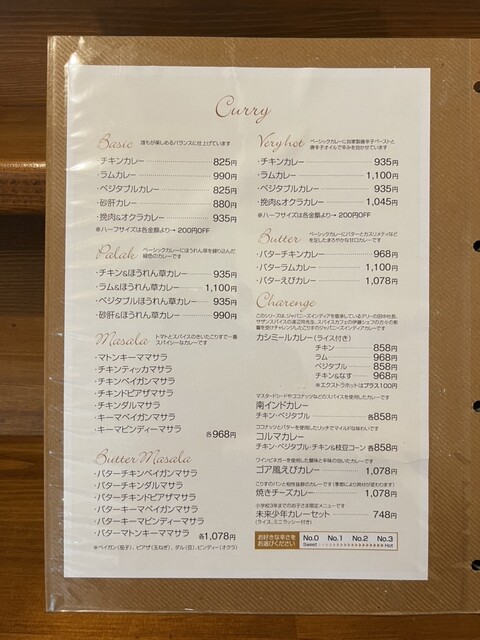 Curry
Basic 誰もが楽しめるバランスに仕上げています
・チキンカレー 825円
・ラムカレー 990円
・ベジタブルカレー 825円
・砂肝カレー 880円
・挽肉&オクラカレー 935円
※ハーフサイズは各金額より→200円OFF
Palak ベーシックカレーにほうれん草を練り込んだ
緑色のカレーです
・チキン&ほうれん草カレー 935円
・ラム&ほうれん草カレー 1,100円
・ベジタブルほうれん草カレー 935円
・砂肝&ほうれん草カレー 990円
Masala トマトとスパイスのきいたこりすで一番
スパイシーなカレーです
・マトンキーママサラ
・チキンティッカマサラ
・チキンベイガンマサラ
・チキンドピアザマサラ
・チキンダルマサラ
・キーマベイガンマサラ
・キーマビンディーマサラ 各968円
Butter Masala
・バターチキンベイガンマサラ
・バターチキンダルマサラ
・バターチキンドピアザマサラ
・バターキーマベイガンマサラ
・バターキーマビンディーマサラ
・バターマトンキーママサラ 各1,078円
※ベイガン(茄子)、ピアザ(玉ねぎ)、ダル(豆)、ビンディー(オクラ)
Very hot ベーシックカレーに自家製唐辛子ペーストと
唐辛子オイルで辛みを効かせています
・チキンカレー 935円
・ラムカレー 1,100円
・ベジタブルカレー 935円
・挽肉&オクラカレー 1,045円
※ハーフサイズは各金額より→200円OFF
Butter ベーシックカレーにバターとカスリメティなど
を足したまろやかな甘口カレーです
・バターチキンカレー 968円
・バターラムカレー 1,100円
・バターえびカレー 1,078円
Charenge
このシリーズは、ジャパニーズインディアを提唱しているデリーの田中社長、
サザンスパイスの渡辺玲先生、スパイスカフェの伊藤シェフの方々の影
響を受けチャレンジしたこりすのジャパニーズインディアカレーです
カシミールカレー(ライス付き)
チキン 858円
ラム 968円
ベジタブル 858円
チキン&なす 968円
※エクストラホットはプラス100円
マスタードシードやココナッツなどのスパイスを使用したカレーです
南インドカレー
チキン・ベジタブル 各858円
ココナッツとバターを使用したリッチでマイルドな味わいです
コルマカレー
チキン・ベジタブル・チキン&枝豆コーン 各858円
ワインビネガーを使用した酸味と辛味の効いたカレーです
ゴア風えびカレー 1,078円
こりすのパンと相性抜群のカレーです(季節により具材が変わります)
焼きチーズカレー 1,078円
小学校3年までのお子さま限定メニューです
未来少年カレーセット 748円
(ライス、ミニラッシー付き)
お好きな辛さを
お選びください
No.0 No.1 No.2 No.3
Sweet Hot